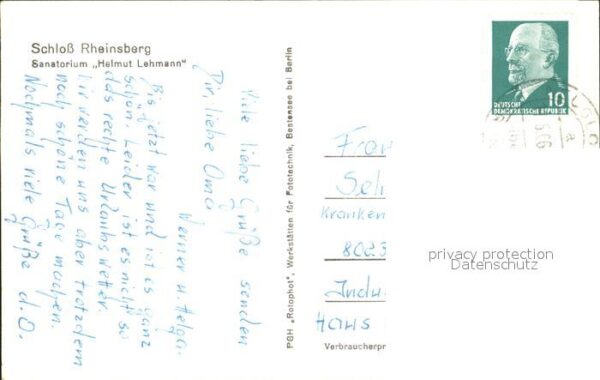 Schloß Rheinsberg
Sanatorium „Helmut Lehmann"
Viele liebe Grüße senden
Dir liebe Oma
Werner u. Helga.
Bis jetzt war und ist es ganz
schön. Leider ist es nicht so
das rechte Urlaubswetter.
Wir werden uns aber trotzdem
noch schöne Tage machen.
Nochmals viele Grüße d. O.
PGH „Rotophot", Werkstätten für Fototechnik, Bestensee bei Berlin
DEUTSCHE
DEMOKRATISCHE REPUBLIK
10
Frau
Seh
Kranken
8023
Indu
Haus
privacy protection
Datenschutz
Verbraucherpr